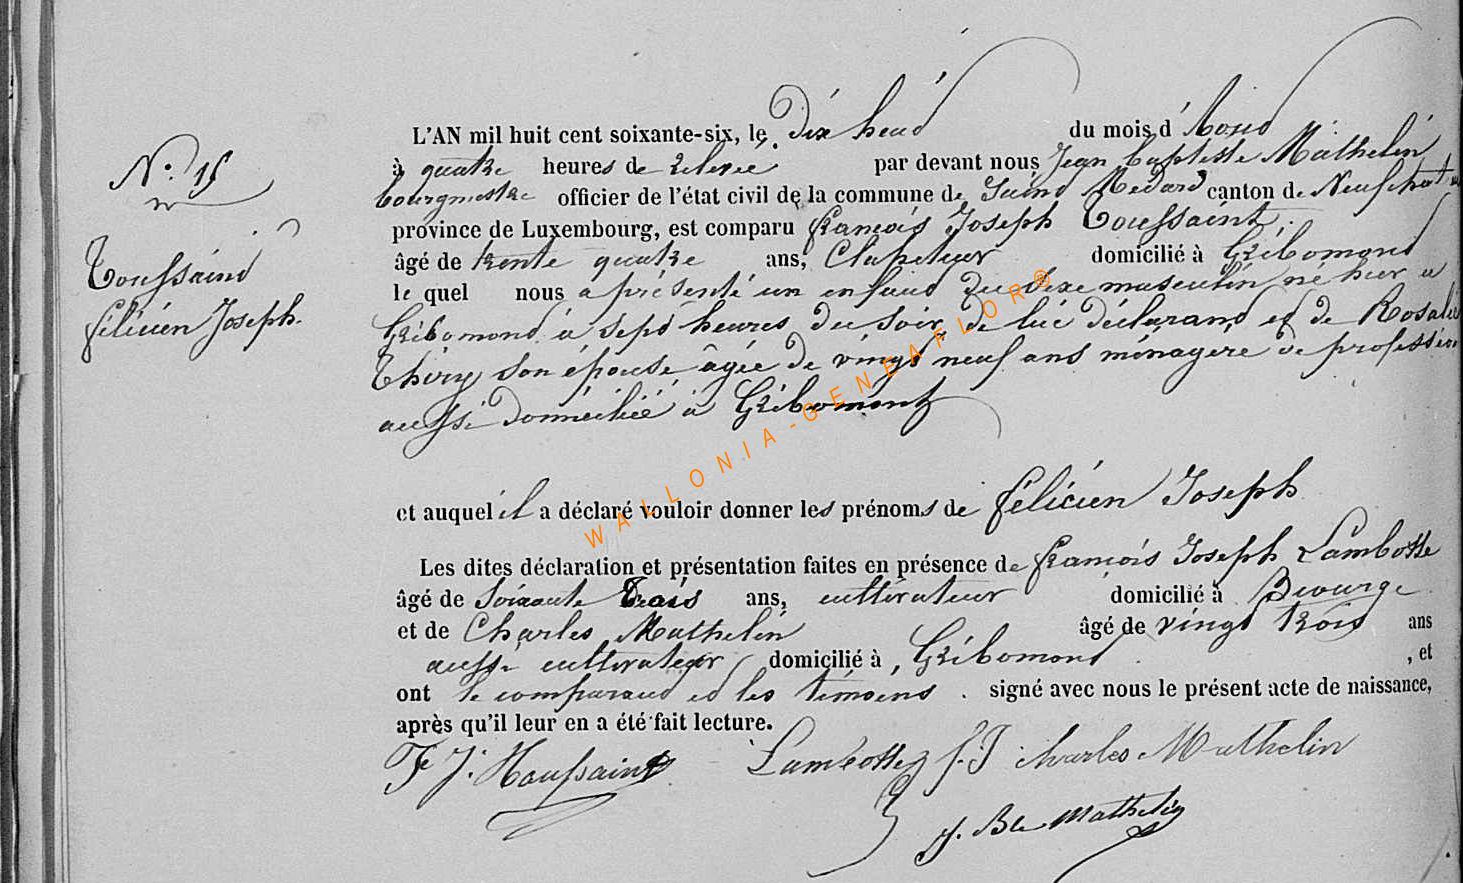 N° 15
Toussaint
Félicien Joseph.
L'AN mil huit cent soixante-six, le dix huit du mois d'Aout
à quatre heures de relevée par devant nous Jean Baptiste Mathelin
bourgmestre officier de l'état civil de la commune de Saint Medard canton de Neufchateau
province de Luxembourg, est comparu françois Joseph Toussaint
âgé de trente quatre ans, domicilié à Gribomont
le quel nous a présenté un enfant du sexe masculin né hier a
Gribomont à sept heures du soir, de lui déclarant et de Rosalie
Thiry son épouse âgée de vingt neuf ans ménagère de profession
aussi domiciliée à Gribomont
et auquel il a déclaré vouloir donner les prénoms de félicien Joseph
Les dites déclaration et présentation faites en présence de françois Joseph Lambotte
âgé de Soixante Trois ans, cultivateur domicilié à
et de Charles Mathelin âgé de vingt trois ans
aussi cultivateur domicilié à Gribomont , et
ont le comparant et les témoins . signé avec nous le présent acte de naissance,
après qu'il leur en a été fait lecture.
F J. Toussaint Lambotte f. J charles Mathelin
J. Bte Mathelin
WALLONIA-GENEAFLOR®